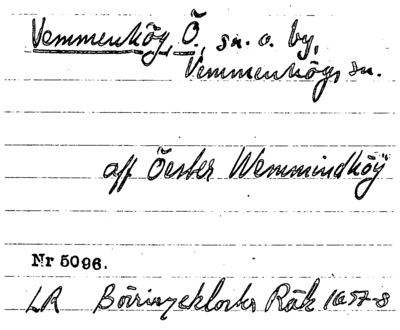 Vemmenhög, Ö., sn. o. by,
Vemmenhögs sn.
aff Öester Wemmindhöÿ
Nr 5096.
LR Börringeklosters Räk 1657-8